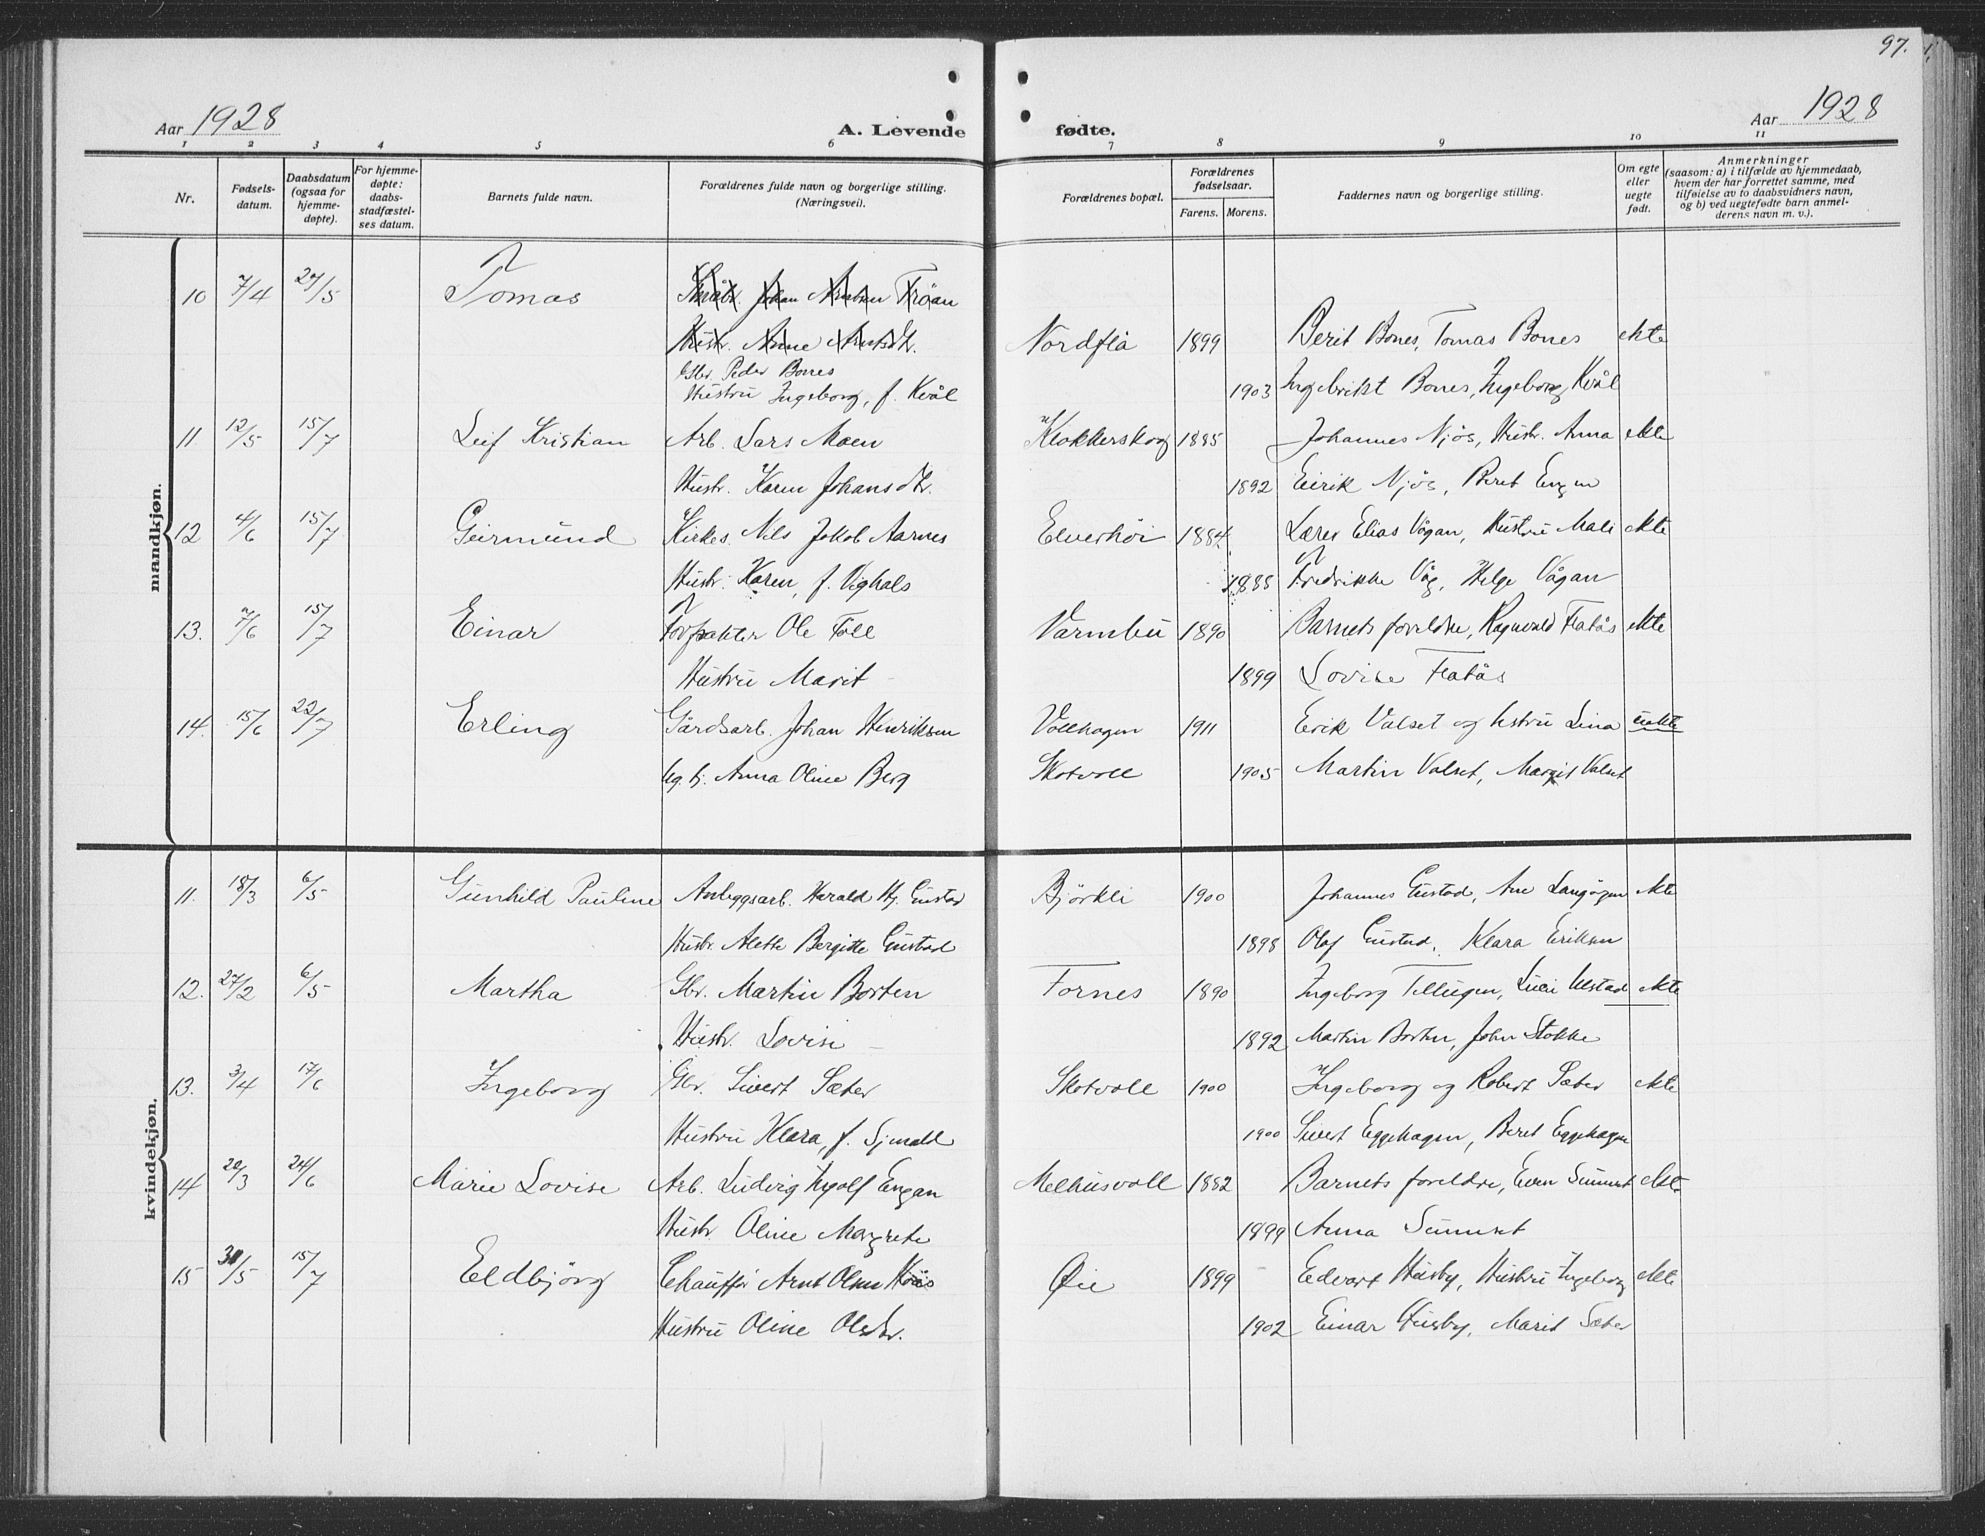 97.
Aar 1928
A. Levende
fødte.
Aar 1928
1 2 3 4 5 6 7 8 9 10 11
Nr.
Fødsels-
datum.
Daabsdatum
(ogsaa for
hjemme-
døpte).
For hjemme-
døpte:
daabs-
stadfæstel-
ses datum.
Barnets fulde navn.
Forældrenes fulde navn og borgerlige stilling.
(Næringsvei).
Forældrenes bopæl.
Forældrenes
fødselsaar.
Farens. Morens.
Faddernes navn og borgerlige stilling.
Om egte
eller
uegte
født.
Anmerkninger
(saasom: a) i tilfælde av hjemmedaab,
hvem der har forrettet samme, med
tilføielse av to daabsvidners navn,
og b) ved uegtefødte barn anmel-
derens navn m. v.).
mandkjøn.
10 7/4 27/5 Tomas Johan Arntsen Trøan
Hustr. Anne Arntsdtr. Nordflå 1899 Berit Bones, Tomas Bones ekte
Gbr. Peder Bones
Hustru Ingeborg, f. Kvål 1903 Ingebrikt Bones, Ingeborg Kvål
11. 12/5 15/7 Leif Kristian Arb. Lars Moen Klokkerskog 1885 Johannes Njøs, Hustr. Anna ekte
Hustr. Karen Johansdtr. 1892 Eirik Njøs, Beret Engen
12 4/6 15/7 Geirmund Kirkes. Nils Jakob Aarnes Elverhøi 1884 Lærer Elias Vågan, Hustru Mali ekte
Hustr. Karen, f. Vighals 1885 Fredrikke Våg, Helge Vågan
13. 7/6 15/7 Einar Forpakter Ole Foll Varmbu 1890 Barnets foreldre, Ragnvald Flatås ekte
Hustru Marit 1899 Lovise Flatås
14. 15/6 22/7 Erling Gårdsarb. Johan Henriksen Vollhagen 1911 Erik Valset og hustru Lina uekte
ug. pj. Anna Oline Berg Skotvoll 1905 Martin Valset, Margit Valset
kvindekjøn.
11. 18/3 6/5 Gunhild Pauline Anleggsarb. Harald Hj. Gustad Bjørkli 1900 Johannes Gustad, Ane Langørgen ekte
Hustr. Alette Bergitte Gustad 1898 Olaf Gustad, Klara Eriksen
12. 27/2 6/5 Martha Gbr. Martin Borten Fornes 1890 Ingeborg Tellugen, Ulstad ekte
Hustr. Lovise 1892 Martin Borten, John Stokke
13. 3/4 17/6 Ingeborg Gbr. Sivert Sæter Skotvoll 1900 Ingeborg og Robert Sæter ekte
Hustru Klara, f. 1900 Sivert Eggehagen, Beret Eggehagen
14 20/3 24/6 Marie Lovise Arb. Ludvig Ingolf Engan Melhusvoll 1882 Barnets foreldre, Even Sunnset ekte
Hustr Oline Margrete 1899 Anna Sunnset
15 31/5 15/7 Eldbjørg Chauffør Arnt Olsen Øie 1899 Edvart Husby, Hustru Ingeborg ekte
Hustru Oline Olsdtr. 1902 Einar Husby, Marit Sæter